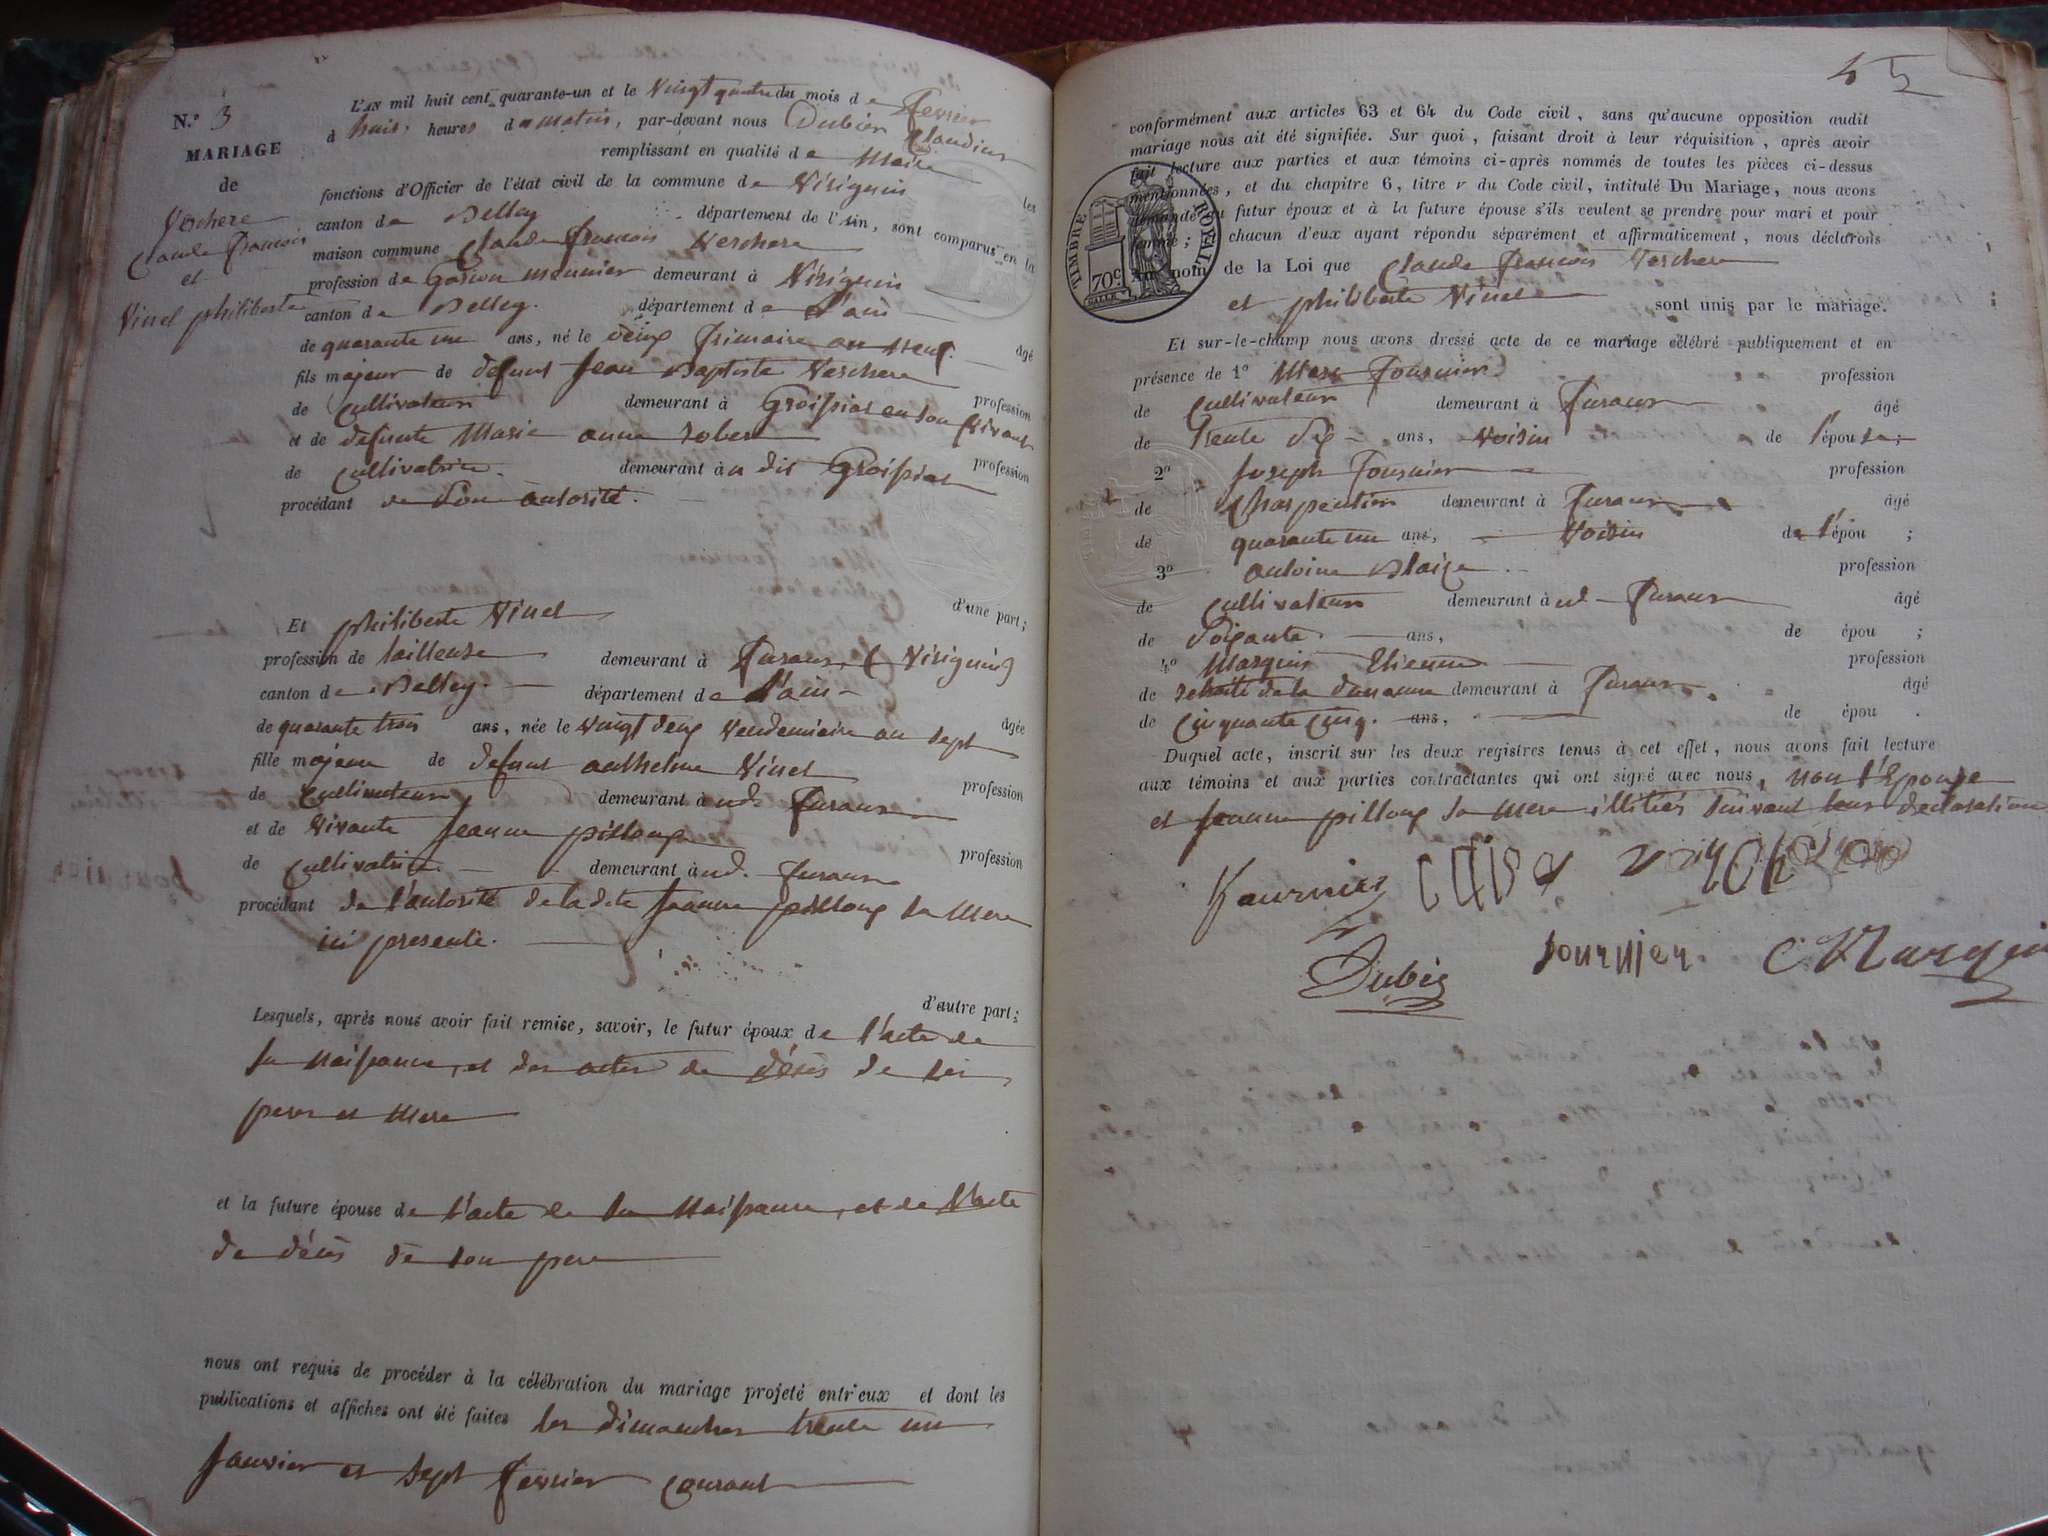 N.º 3
MARIAGE
de
Verchere
Claude francois
et
Vinel philiberte
L'AN mil huit cent quarante-un et le vingt quatre du mois de fevrier
à huit heures du matin, par-devant nous Dubier Claudius
remplissant en qualité de Maire les
fonctions d'Officier de l'état civil de la commune de Virignin
canton de Belley département de l'Ain, sont comparus en la
maison commune Claude francois Verchere
profession de Garcon meunier demeurant à Virignin
canton de Belley. département de l'ain
âgé
de quarante un ans, né le deux frimaire an neuf.
fils majeur de defunt Jean Baptiste Verchere
profession
de Cultivateur demeurant à Groissiat en son vivant
et de defunte Marie anne
profession
de Cultivatrice. demeurant au dit Groissiat
procédant de son autorité.
d'une part;
Et philiberte Vinel
profession de tailleuse demeurant à (Virignin)
canton de Belley. département de l'ain
âgée
de quarante trois ans, née le vingt deux Vendemiaire an sept
fille majeure de defunt anthelme Vinel
profession
de Cultivateur demeurant à ud.
et de vivante Jeanne pilloux
profession
de Cultivatrice demeurant à ud.
procédant de l'autorité de la dite Jeanne pilloux sa mere
ici presente.
d'autre part;
Lesquels, après nous avoir fait remise, savoir, le futur époux de l'acte de
sa naissance, et des actes de décès de ses
pere et mere
et la future épouse de l'acte de sa naissance, et de l'acte
de décès de son pere
nous ont requis de procéder à la célébration du mariage projeté entr'eux et dont les
publications et affiches ont été faites les dimanches trente un
Janvier et sept fevrier Courant
45
conformément aux articles 63 et 64 du Code civil, sans qu'aucune opposition audit
mariage nous ait été signifiée. Sur quoi, faisant droit à leur réquisition, après avoir
fait lecture aux parties et aux témoins ci-après nommés de toutes les pièces ci-dessus
mentionnées, et du chapitre 6, titre v du Code civil, intitulé Du Mariage, nous avons
demandé au futur époux et à la future épouse s'ils veulent se prendre pour mari et pour
femme; chacun d'eux ayant répondu séparément et affirmativement, nous déclarons
au nom de la Loi que Claude francois Verchere
et philiberte Vinel sont unis par le mariage.
TIMBRE ROYAL
70c
Et sur-le-champ nous avons dressé acte de ce mariage célébré publiquement et en
présence de 1º Marc Fournier profession
de Cultivateur demeurant à âgé
de trente six ans, voisin de l'épouse;
2º Joseph Fournier profession
de Charpentier demeurant à âgé
de quarante un ans, voisin de l'épou ;
3º antoine Blaize profession
de Cultivateur demeurant à ud. âgé
de Soixante ans, de épou ;
4º Marquis Etienne profession
de retraité de la douanne demeurant à âgé
de Cinquante cinq. ans, de épou .
Duquel acte, inscrit sur les deux registres tenus à cet effet, nous avons fait lecture
aux témoins et aux parties contractantes qui ont signé avec nous, non l'Epouse
et Jeanne pilloux sa mere illitiés suivant leur declaration
Fournier
Dubie fournier